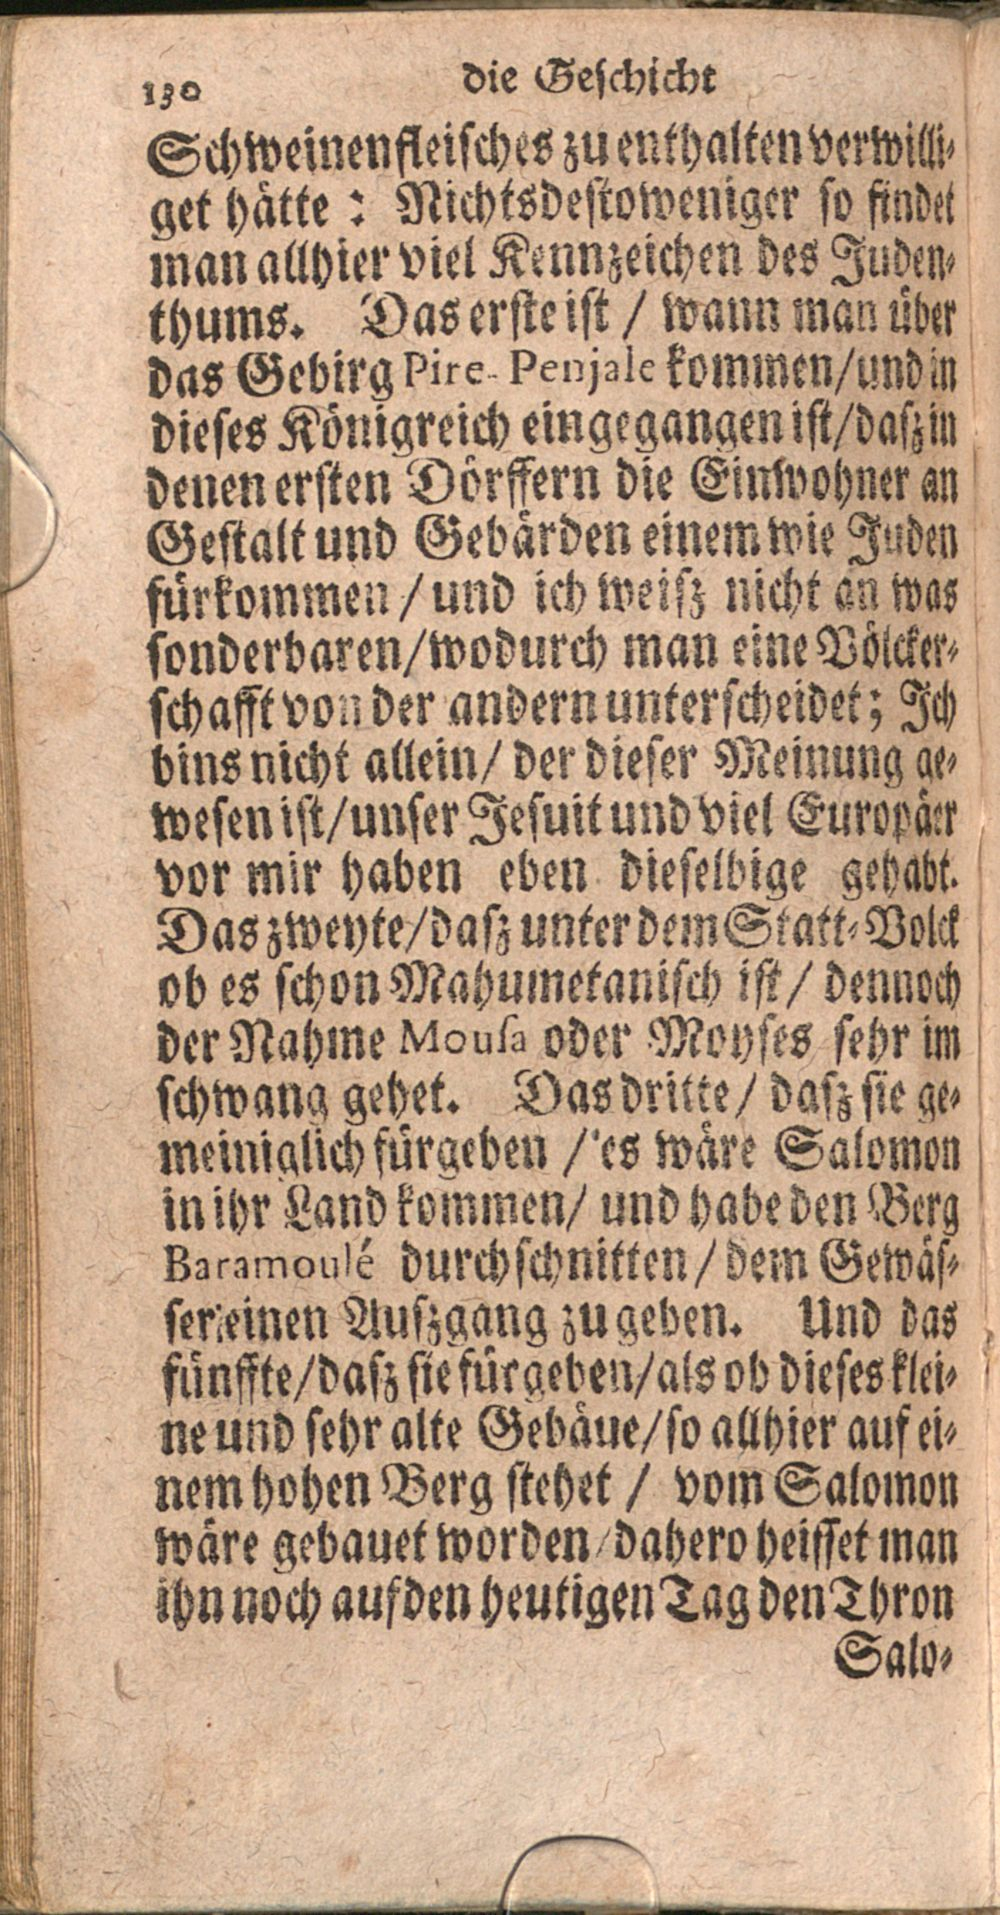 130 die Geschicht
Schweinenfleisches zu enthalten verwilli-
get hätte: Nichtsdestoweniger so findet
man allhier viel Kennzeichen des Juden-
thums. Das erste ist / wann man über
das Gebirg Pire-Penjale kommen/und in
dieses Königreich eingegangen ist/dasz in
denen ersten Dörffern die Einwohner an
Gestalt und Gebärden einem wie Juden
fürkommen / und ich weisz nicht an was
sonderbaren/wodurch man eine Völcker-
schafft von der andern unterscheidet; Ich
bins nicht allein/ der dieser Meinung ge-
wesen ist/unser Jesuit und viel Europäer
vor mir haben eben dieselbige gehabt.
Das zweyte/dasz unter dem Statt-Volck
ob es schon Mahumetanisch ist/ dennoch
der Nahme Mousa oder Moyses sehr im
schwang gehet. Das dritte/ dasz sie ge-
meiniglich fürgeben / es wäre Salomon
in ihr Land kommen/ und habe den Berg
Baramoulé durchschnitten / dem Gewäs-
ser einen Auszgang zu geben. Und das
fünffte/dasz sie fürgeben/als ob dieses klei-
ne und sehr alte Gebäue/so allhier auf ei-
nem hohen Berg stehet / vom Salomon
wäre gebauet worden/dahero heisset man
ihn noch auf den heutigen Tag den Thron
Salo-